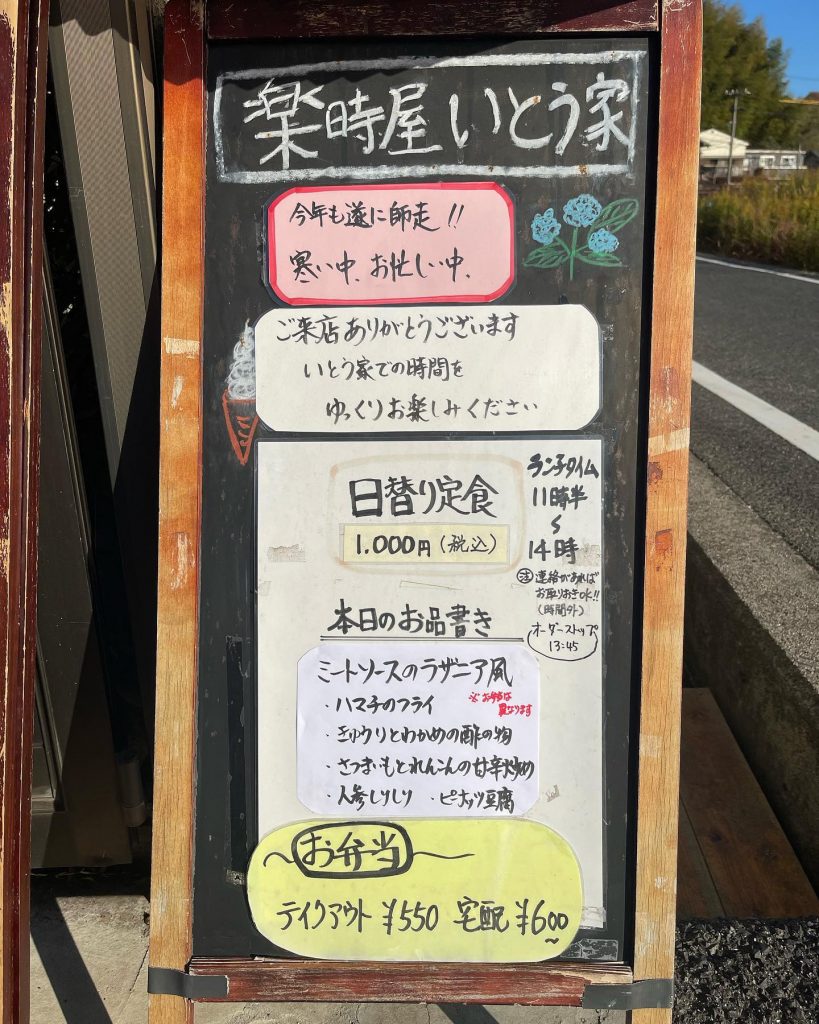 楽時屋 いとう家
今年も遂に師走!!
寒い中、お忙しい中、
ご来店ありがとうございます
いとう家での時間を
ゆっくりお楽しみください
日替り定食
1.000円(税込)
ランチタイム
11時半
~
14時
注 連絡があれば
お取りおきOK!!
(時間外)
オーダーストップ
13:45
本日のお品書き
ミートソースのラザニア風
・ハマチのフライ
※お弁当は
異なります
・きゅうりとわかめの酢の物
・さつまいもとれんこんの甘辛炒め
・人参しりしり ・ピーナッツ豆腐
~お弁当~
テイクアウト ¥550 宅配 ¥600~